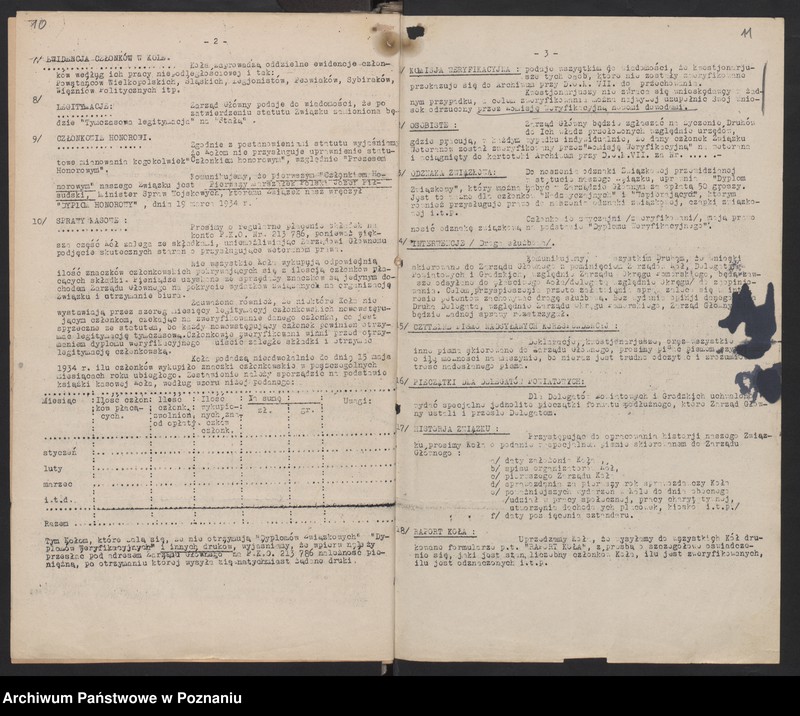 10
- 2 -
EWIDENCJA CZŁONKÓW W KOLE.
Koła wprowadzą oddzielne ewidencje człon-
ków według ich pracy niepodległościowej i tak:
Powstańców Wielkopolskich, Śląskich, Legjonistów, Peowiaków, Sybiraków,
Więźniów Politycznych itp.
8/
LEGITYMACJE:
Zarząd Główny podaje do wiadomości, że po
zatwierdzeniu statutu Związku zamieniona bę-
dzie "Tymczasowa legitymacja" na "stałą".
9/ CZŁONKOWIE HONOROWI.
Zgodnie z postanowieniami statutu wyjaśniamy
że Kołom nie przysługuje uprawnienie statu-
towe mianowania kogokolwiek "Członkiem honorowym", względnie "Prezesem
Honorowym".
Komunikujemy, że pierwszym "Członkiem Ho-
norowym" naszego Związku jest Pierwszy Marszałek Polski Józef Pił-
sudski, Minister Spraw Wojskowych, któremu Związek nasz wręczył
"DYPLOM HONOROWY", dnia 19 marca 1934 r.
10/ SPRAWY KASOWE :
Prosimy o regularne płacenie składek na
konto P.K.O. Nr. 213 786, ponieważ więk-
sza część Kół zalega ze składkami, uniemożliwiając Zarządowi Głównemu
podjęcie skutecznych starań o przysługujące weteranom prawa.
Nie wszystkie Koła wykupują odpowiednią
ilość znaczków członkowskich pokrywających się z ilością członków pła-
cących składki. Pieniądze uzyskane ze sprzedaży znaczków są jedynym do-
chodem Zarządu Głównego na pokrycie wydatków związanych na organizację
Związku i utrzymanie biura.
Zauważono również, że niektóre Koła nie
wystawiają przez szereg miesięcy legitymacyj członkowskich nowowstępu-
jącym członkom, czekając na zweryfikowanie danego członka, co jest
sprzeczne ze statutem, bo każdy nowowstępujący członek powinien otrzy-
mać legitymację tymczasową. Członkowie zweryfikowani winni przed otrzy-
maniem dyplomu weryfikacyjnego uiścić zaległe składki i otrzymać
legitymację członkowską.
Koła podadzą niezwłocznie do dnia 15 maja
1934 r. ilu członków wykupiło znaczki członkowskie w poszczególnych
miesiącach roku ubiegłego. Zestawienie należy sporządzić na podstawie
książki kasowej Koła, według wzoru niżej podanego:
Miesiąc : Ilość człon- : Ilość : Ilość : Na sumę : Uwagi:
ków płacą- : członk. : wykupio- : zł. : gr. :
cych. : zwolnion. : nych zna-
od opłaty. : czków
członk.
styczeń
luty
marzec
i.t.d.
Razem
Tym Kołom, które żalą się, że nie otrzymają "Dyplomów Związkowych" "Dy-
plomów Weryfikacyjnych" i innych druków, wyjaśniamy, że wpierw należy
przesłać pod adresem Zarządu Głównego na P.K.O. 213 786 należność pie-
niężną, po otrzymaniu której wysyła się natychmiast żądane druki.
11
- 3 -
KOMISJA WERYFIKACYJNA : podaje wszystkim do wiadomości, że kwestjonarju-
sze tych osób, które nie zostały zweryfikowane
przekazuje się do Archiwum przy D.O.K. VII. do przechowania.
Kwestjonarjuszy nie zdraca się wnioskodawcy w żad-
nym przypadku, a celem zweryfikowania można najwyżej uzupełnić swój wnio-
sek odrzucony przez Komisję Weryfikacyjną nowymi dowodami.
OSOBISTE :
Zarząd Główny będzie zgłaszać na życzenie Druhów
do Ich władz przełożonych względnie urzędów,
gdzie pracują, w każdym wypadku indywidualnie, że dany członek Związku
Weteranów został zweryfikowany przez "Komisję Weryfikacyjną" na weterana
i zaciągnięty do kartoteki Archiwum przy D.O.K.VII. za Nr. .... .-
ODZNAKA ZWIĄZKOWA:
Do noszenia odznaki Związkowej przewidzianej
w statucie naszego Związku, uprawnia "Dyplom
Związkowy", który można nabyć w Zarządzie Głównym za opłatą 50 groszy.
Jest to ważne dla członków "Nadzwyczajnych" i "Popierających", którym
również przysługuje prawo do noszenia odznaki związkowej, czapki związko-
wej i.t.p.
Członkowie zwyczajni /zweryfikowani/, mają prawo
nosić odznakę związkową na podstawie "Dyplomu Weryfikacyjnego".
4/ INTERWENCJE / Droga służbowa/.
Komunikujemy, wszystkim Druhom, że wnioski
skierowane do Zarządu Głównego z pominięciem Zarządów Kół, Delegatów
Powiatowych i Grodzkich, względnie Zarządu Okręgu Pomorskiego, będą zaw-
sze odsyłane do właściwego Koła/Delegata, względnie Okręgu/ do zaopinio-
wania. Celem przyspieszenia przeto załatwienia spraw, prosimy się i in-
teresie petentów zachowywać drogę służbową. Bez wydania opinji danego
Druha Delegata, względnie Zarządu Okręgu Pomorskiego, Zarząd Główny
będzie żadnej sprawy rozstrzygał.
15/ CZYTELNE PISMO NADSYŁANYCH KORESPONDENCYJ :
Deklaracje, kwestjonarjusze, oraz wszystkie
inne pisma skierowane do Zarządu Głównego, prosimy pisać pismem
o ile możności maszynowo, bo nieraz jest trudno odczytać i zrozumieć
treść nadesłanego pisma.
16/ PIECZĄTKI DLA DELEGATÓW POWIATOWYCH:
Dla Delegatów Powiatowych i Grodzkich uchwalono
wydać specjalne jednolite pieczątki formatu podłużnego, które Zarząd Głów-
ny ustali i prześle Delegatom.
17/ HISTORJA ZWIĄZKU :
Przystępując do opracowania historji naszego Związ-
ku, prosimy Koła o podanie w specjalnem piśmie skierowanem do Zarządu
Głównego :
a/ daty założenia Koła,
b/ spisu organizatorów Kół,
c/ pierwszego Zarządu Koła
d/ sprawozdania za pierwszy rok sprawozdawczy Koła
e/ ważniejszych wydarzeń w Kole do dnia obecnego:
/udział w pracy społecznej, pracy charytatywnej,
stwarzania dochodowych placówek, kiosków i.t.p./
f/ daty poświęcenia sztandaru.
18/ RAPORT KOŁA :
Uprzedzamy Koła, że wysyłamy do wszystkich Kół dru-
kowane formularze p.t. "RAPORT KOŁA", z prośbą o szczegółowe oświadcze-
nie się, jaki jest stan liczebny członków Koła, ilu jest zweryfikowanych,
ilu jest odznaczonych i.t.p.
Archiwum Państwowe w Poznaniu